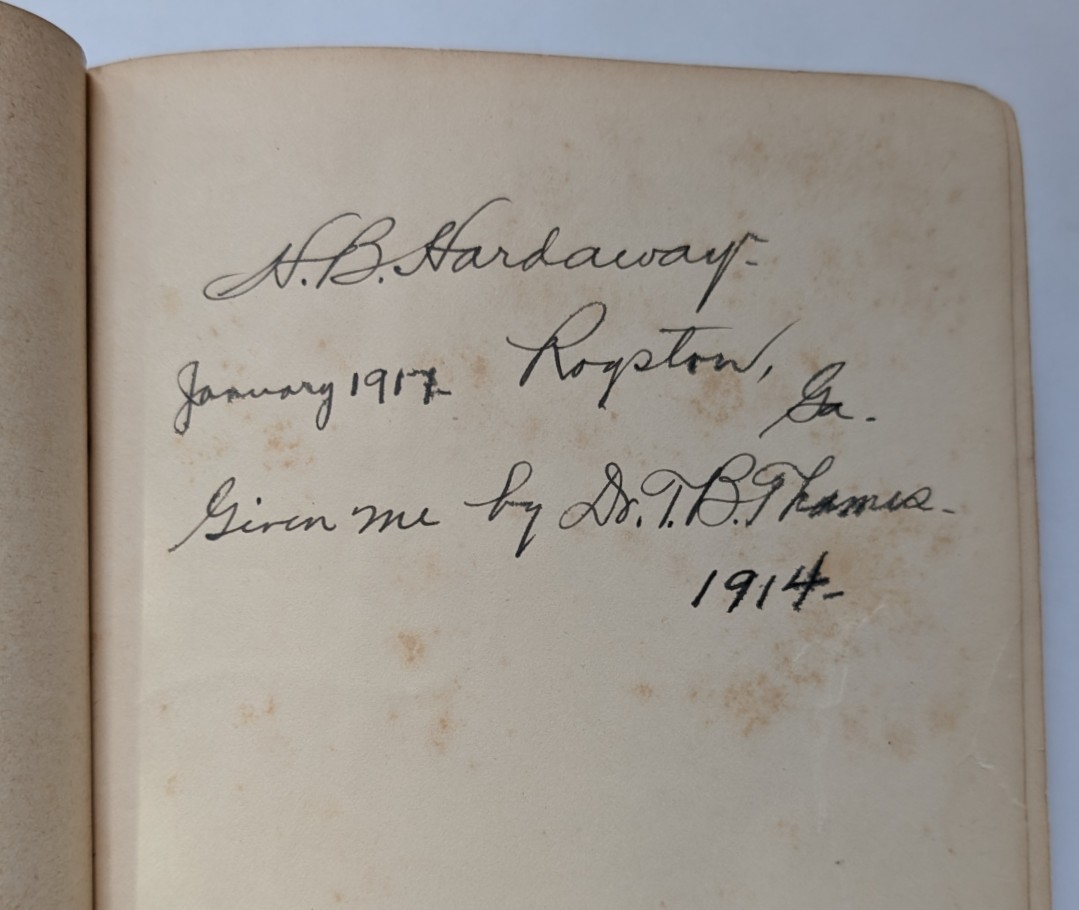 H. B. Hardaway-
Royston,
January 1917- Ga.
Given me by Dr. T. B. Thames-
1914-